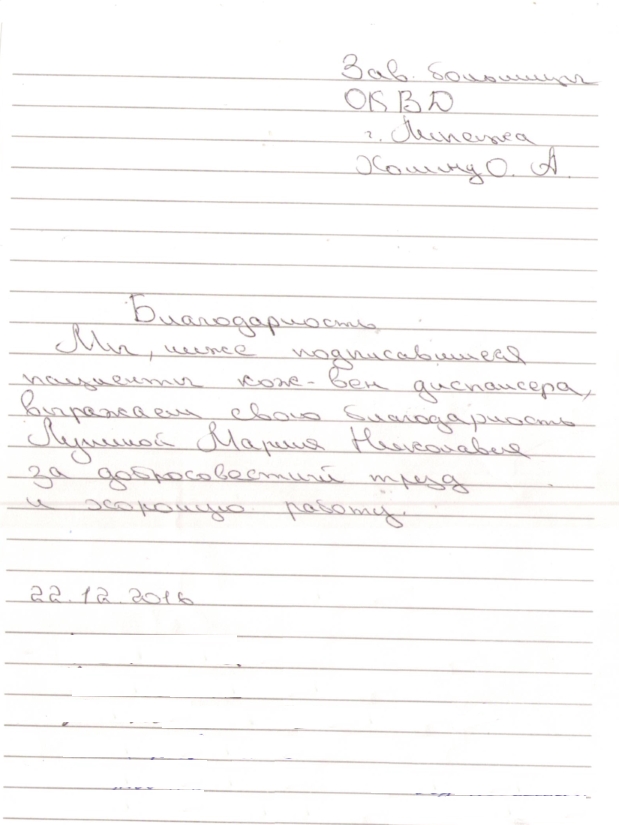 Зав. больницы
ОКВД
г. Липецка
О. А.
Благодарность
Мы, ниже подписавшиеся
пациенты кож-вен диспансера,
выражаем свою благодарность
Мария Николавня
за добросовестный труд
и хорошую работу.
22.12.2016